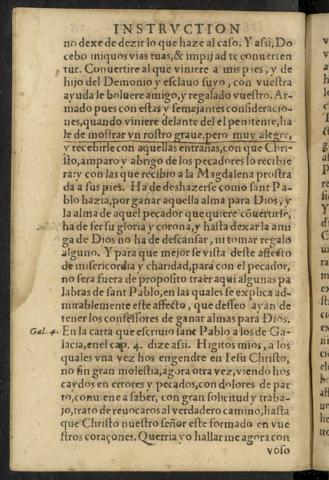 INSTRVCTION
no dexe de dezir lo que haze al caso. Y assi, Do
cebo iniquos vias tuas, & impij ad te conuerten
tur. Conuertire al que viniere a mis pies, y de
hijo del Demonio y esclauo suyo, con vuestra
ayuda le boluere amigo, y regalado vuestro. Ar-
mado pues con estas y semejantes consideracio-
nes, quando viniere delante del el penitente, ha
le de mostrar vn rostro graue, pero muy alegre,
y recebirle con aquellas entrañas, con que Chri-
sto, amparo y abrigo de los pecadores lo recibie
ra: y con las que recibio a la Magdalena prostra
da a sus pies. Ha de deshazerse como sant Pa-
blo hazia, por ganar aquella alma para Dios, y
la alma de aquel pecador que quiere cõuertirse,
ha de ser su gloria y corona, y hasta dexar la ami
ga de Dios no ha de descansar, ni tomar regalo
alguno. Y para que mejor se vista deste affecto
de misericordia y charidad, para con el pecador,
no sera fuera de proposito traer aqui algunas pa
labras de sant Pablo, en las quales se explica ad-
mirablemente este affecto, que desseo ayan de
tener los confessores de ganar almas para Dios.
Gal. 4. En la carta que escriuio sant Pablo a los de Ga-
lacia, en el cap. 4. dize assi. Hijitos mios, a los
quales vna vez hos engendre en Iesu Christo,
no sin gran molestia, agora otra vez, viendo hos
caydos en errores y pecados, con dolores de par
to, conuiene a saber, con gran solicitud y traba-
jo, trato de reuocaros al verdadero camino, hasta
que Christo nuestro señor este formado en vue
stros coraçones. Querria yo hallarme agora con
voso